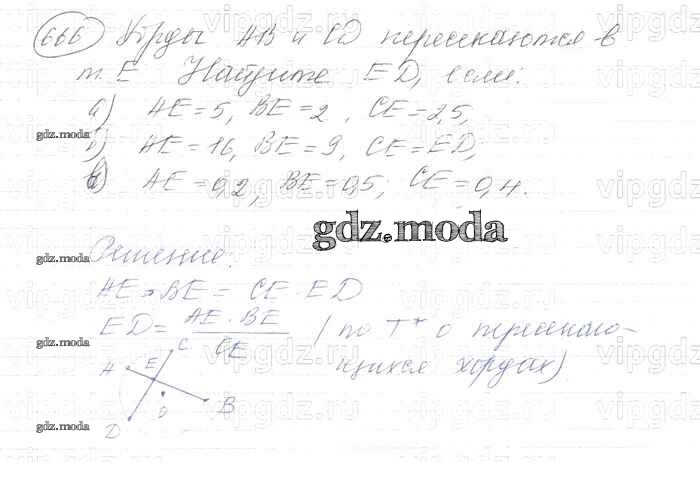 666 Хорды AB и CD пересекаются в
т. E Найдите ED, если:
а) AE = 5, BE = 2, CE = 2,5,
б) AE = 16, BE = 9, CE = ED,
в) AE = 0,2, BE = 0,5, CE = 0,4.
gdz.moda
Решение:
AE · BE = CE · ED
ED = AE · BE / CE (по Т* о пересекаю-
щихся хордах)
A E C
O B
D
gdz.moda
gdz.moda
gdz.moda
gdz.moda
vipgdz.ru